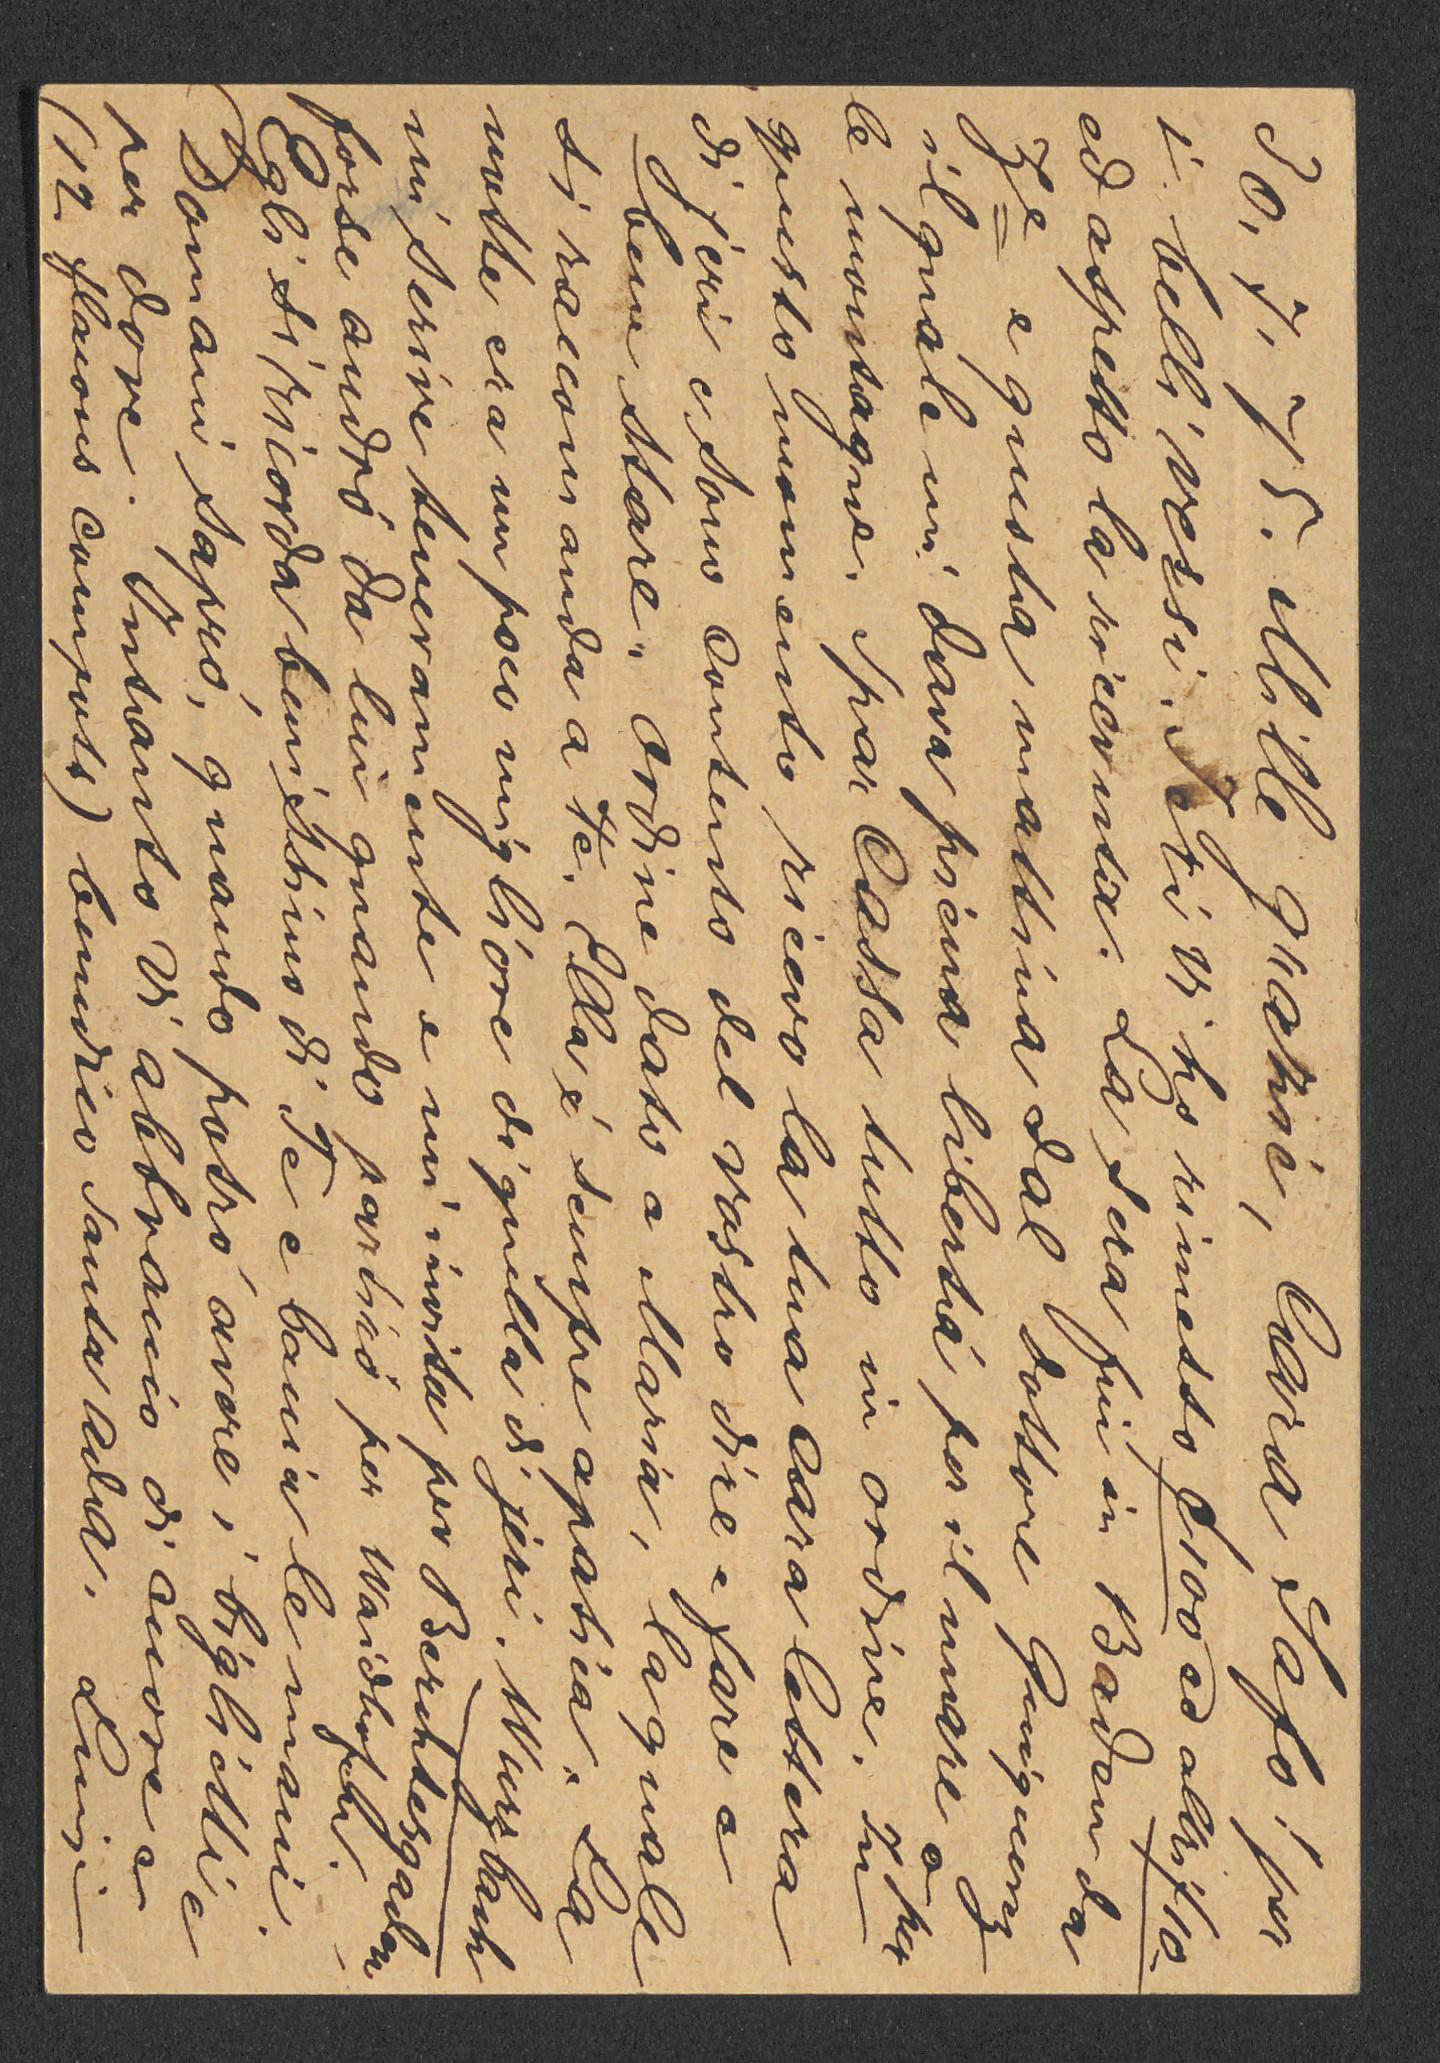 30. 7. 75. Mille grazie, Cara Safo! per
i belli versi. Jeri Vi ho rimesso f 100 ed altri f 10
ed aspetto la ricevuta. La sera fui in Baden da
e questa mattina dal dottore
il quale mi dava piena libertà per il mare o per
le montagne. Spar Cassa tutto in ordine. In
questo momento ricevo la tua cara lettera
di jeri e sono contento del vostro dire e fare e
bene stare. Ordine dato a Maria, la quale
si raccomanda a te. Ella è sempre apatica. La
notte era un poco migliore di quella di jeri. Wurzbach
mi scrive teneramente e mi invita per Berchtesgaden
forse andrò da lui quando partirò per Waidhofen.
Egli si ricorda benissimo di Te e bacia le mani.
Domani saprò, quando potrò avere i biglietti e
per dove. Intanto Vi abbraccio di cuore e
(12 flacons compots) benedico Santa Ada. Luigi